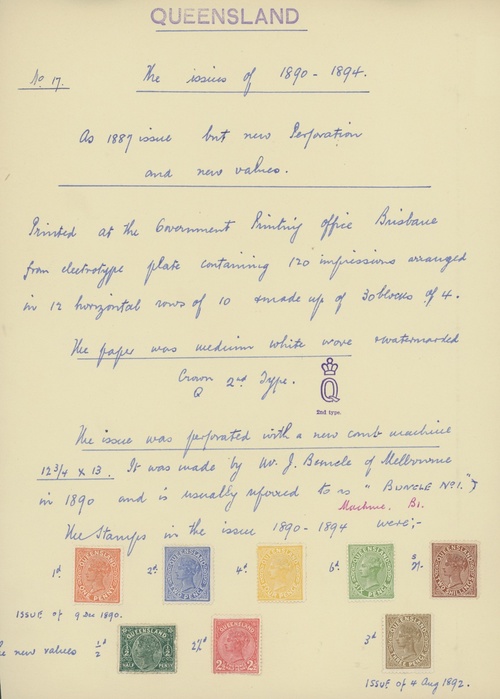 QUEENSLAND
No 17. The issues of 1890 - 1894.
As 1887 issue but new Perforation
and new values.
Printed at the Government Printing office Brisbane
from electrotype plate containing 120 impressions arranged
in 12 horizontal rows of 10 & made up of 30 blocks of 4.
The paper was medium white wove & watermarked
Crown Q 2nd Type.
Q
2nd type.
The issue was perforated with a new comb machine
12 3/4 x 13. It was made by Mr. J. of Melbourne
in 1890 and is usually referred to as "BUNCLE No 1."
Machine. B1.
The Stamps in the issue 1890 - 1894 were;-
1d 2d 4d 6d 2/-
QUEENSLAND ONE PENNY
QUEENSLAND
QUEENSLAND
QUEENSLAND SIX PENCE
QUEENSLAND SHILLINGS
ISSUE of 9 Dec 1890.
new values 1/2d 2 1/2d 3d
QUEENSLAND HALF PENNY
QUEENSLAND 2½
QUEENSLAND THREE PENCE
ISSUE of 4 Aug 1892.